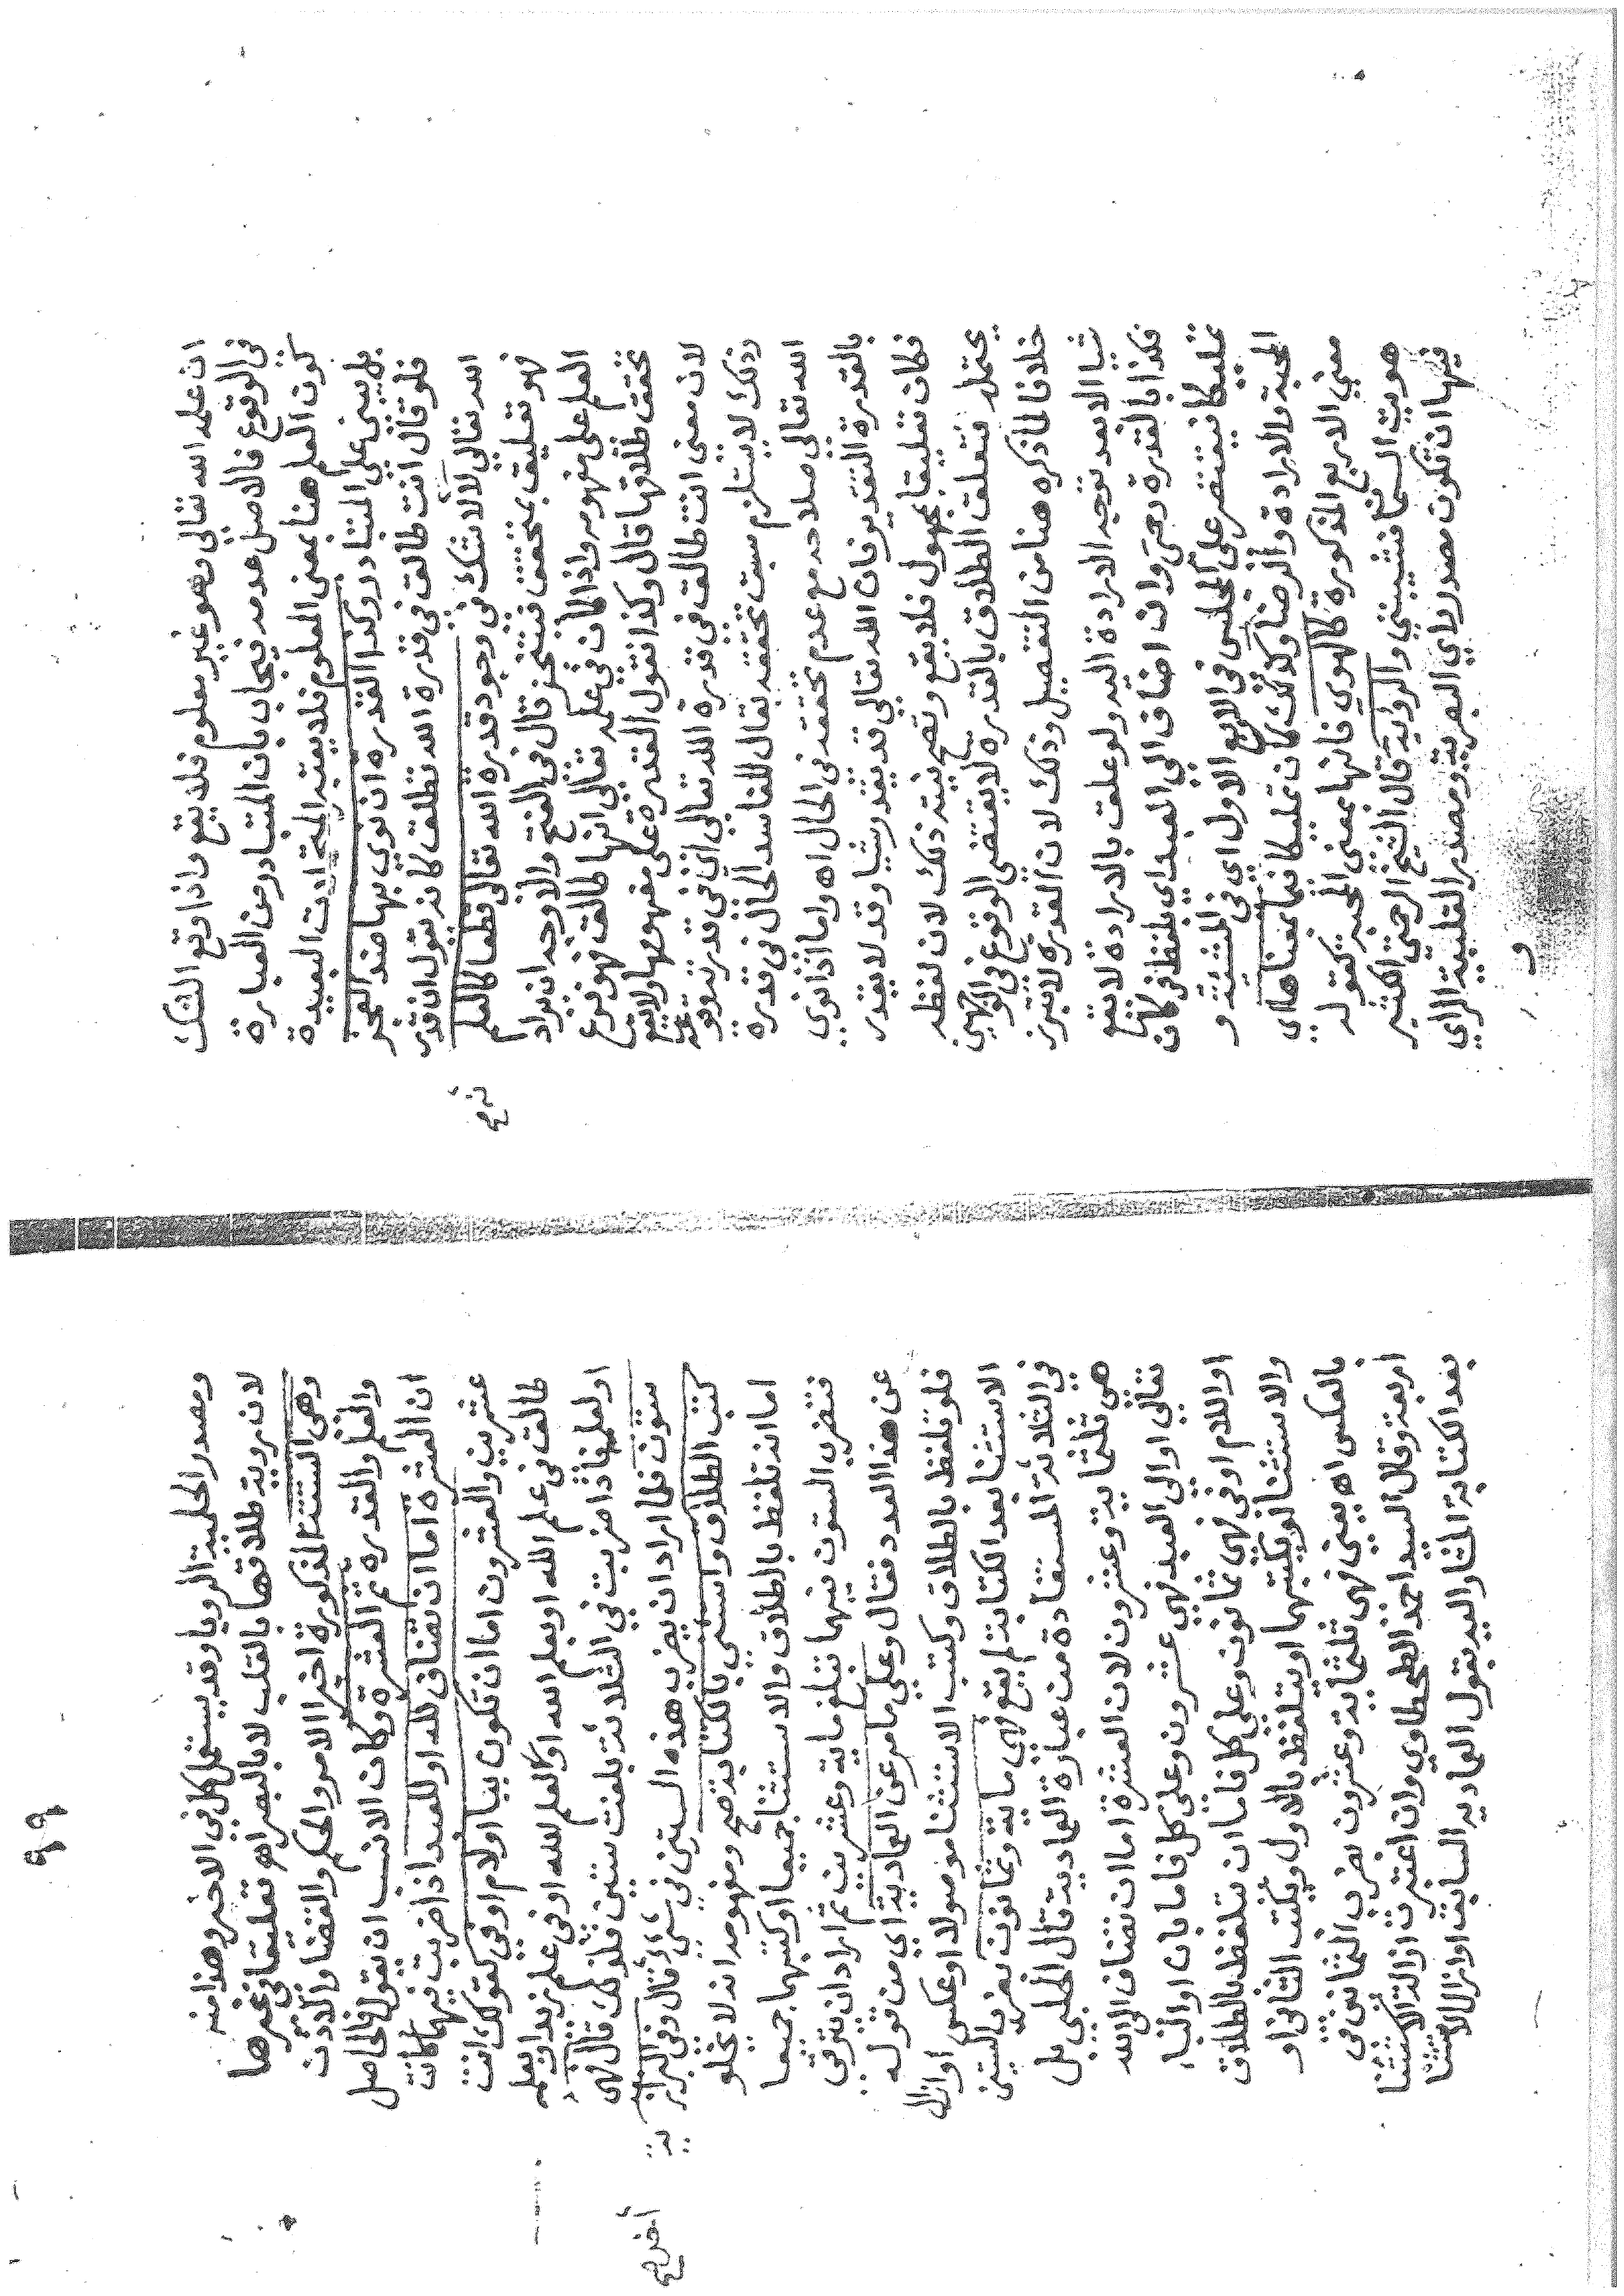 ان علمه الله تعالى وهو غير معلوم فلا يقع واذا وقع الشك
في الوقوع فالاصل عدمه فيجاب بان المتبادر من العبارة
كون العلم هنا بمعنى المعلوم فلا يعتبر البعيدة
بل يبنى على المتبادر وكذا القدرة ان نوى بها ضد العجز
فلو قال انت طالق في قدرة الله تطلق كانه يقول ان قدر
الله تعالى لا لا شك في وجود قدرة الله تعالى قطعا كالعلم
فهو تعليق بمتحقق فيتنجز قال في الفتح والاوجه ان يراد
العلم على مفهومه واذا كان في علمه تعالى انها طالق فهو فرع
تحقق طلاقها قال وكذا نقول القدرة على مفهومها ولا يقع
لان معنى انت طالق في قدرة الله تعالى اي في قدرته وقوعه
وذلك لا يستلزم سبق تحققه يقال للفاسد الحال في قدرة
الله تعالى صلاحه مع عدم تحققه في الحال اه واما اذا نوى
بالقدرة التقدير فان الله تعالى قد يقدر شيا وقد لا يقدر
فكان تعليقا بمجهول فلا يقع وتصح نيته ذلك لان لفظه
يحتمله فتعلق الطلاق بالقدرة لا يقتضي الوقوع في الوجهين
خلافا لما ذكره هنا من التفصيل وذلك لان القدرة لا تبرز
شيا الا بعد توجه الارادة اليه ولو علق بالارادة لا يقع
فكذا بالقدرة رحمتي وان اضاف الى العبد اي بلفظ في كان
تمليكا فيقتصر على المجلس في الاربع الاول اي في المشيئة و
المحبة والارادة والرضا وكذلك كان تمليكا فيما بمعناها اي
معنى الاربع المذكورة كالهوى فانها بمعنى المحبة كقوله
هويت السما فشيبتني والرؤية قال الشيخ الرحمتي اكثر
فيها ان تكون مصدر راي البصرية ومصدر القلبية الراي
و
صح
٩٩
ومصدر الحلمية الرويا وقد يستعمل كل في الاخر وهذا منه
لان روية طلاقها بالقلب لا بالبصر اهو تعليقا في غيرها
وهي الستة المذكورة اخيرا الامر والحكم والقضا والاذن
والعلم والقدرة ثم العشرة وكان الانسب ان يقول فالحاصل
ان العشرة اما ان تضاف لله او للعبد اذا ضربت فيهما كانت
عشرين والعشرون اما ان تكون ببا او لام او في كقولك انت
طالق في علم الله او بعلم الله او لعلم الله او في علم زيد او بعلمه
او لعلمه فاذا ضربت في الثلاثة بلغت ستين فلذلك قال فهي
ستون فلما اراد ان يضرب هذه الستين في شيء اخر قال وفي البزازية
كتب الطلاق واستثنى بالكتابة صح ومفهومه انه لا يخلو
اما انه تلفظ بالطلاق والاستثنا جميعا او كتبهما جميعا
فتضرب الستون فيهما تبلغ ماية وعشرين ثم اراد ان يترقى
عن هذا العدد فقال وعلى ما مر عن العمادية اي من قوله
فلو تلفظ بالطلاق وكتب الاستثنا موصولا او عكس او ازال
الاستثنا بعد الكتابة لم يقع فهي ماية وثمانون بضرب الستين
في الثلاثة المستفادة من عبارة العمادية قال الحلبي بل
هي ثلثماية وعشرون لان العشرة اما ان تضاف الى الله
تعالى او الى العبد فهي عشرون وعلى كل فاما بان او البا
او اللام او في فهي ثمانون وعلى كل فاما ان يتلفظ بالطلاق
والاستثنا او يكتبهما او يتلفظ بالاول ويكتب الثاني او
بالعكس اه يعني فهي ثلثماية وعشرون بضرب الثمانين في
اربعة وقال السيد احمد الطحطاوي وان اعتبرت ازالة الاستثنا
بعد الكتابة المشار اليه بقول العمادية السابق او ازال الاستثنا
صح